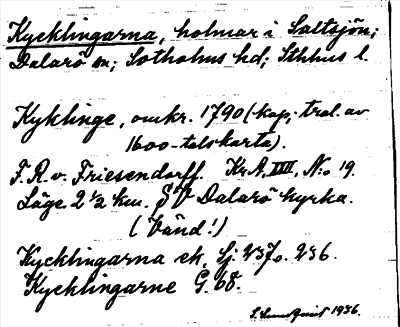 Kycklingarna, holmar i Saltsjön;
Dalarö sn; Sotholms hd; Sthlms l.
Kyklinge, omkr. 1790 (kop. trol. av
1600-talskarta).
F. R. v. Friesendorff. Kr. A. XIII, No 19.
Läge 2 ½ km. SV Dalarö kyrka.
(Vänd!)
Kycklingarna ek, Sj. 237 o. 236.
Kycklingarne G. 68.
S. Lundquist 1936.